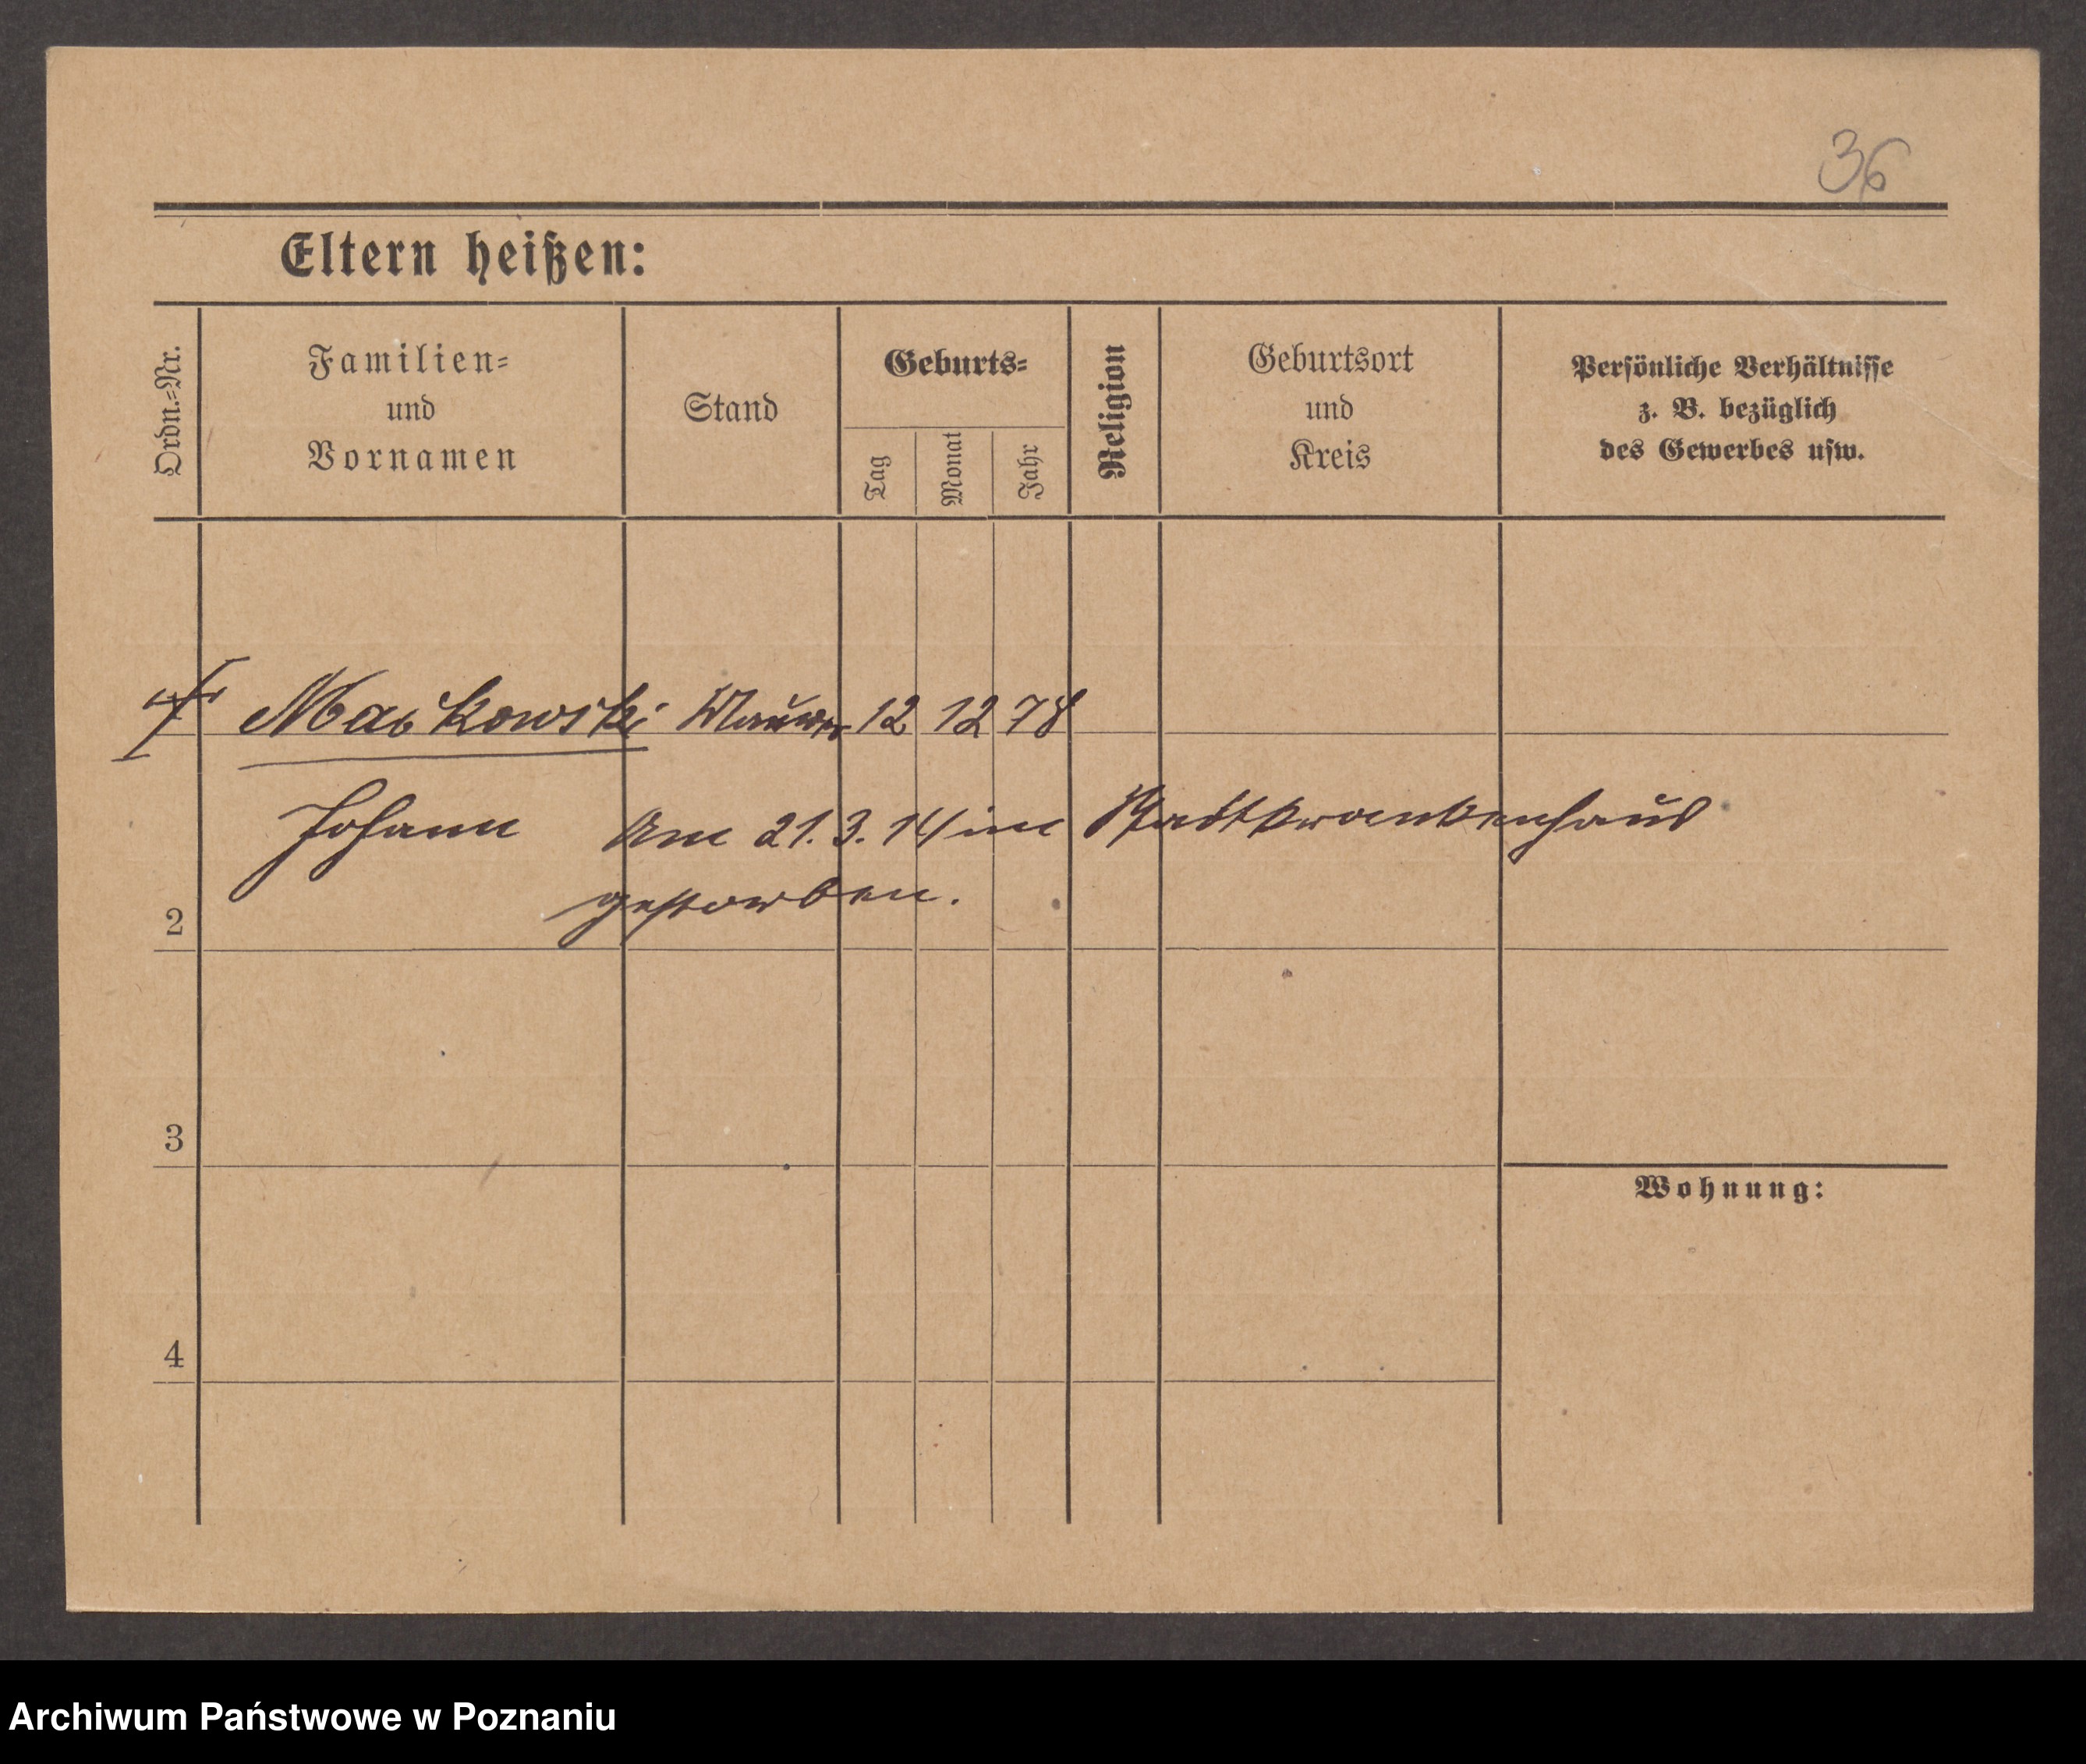 36
Eltern heißen:
Ordn.-Nr.
Familien-
und
Vornamen
Stand
Geburts-
Tag
Monat
Jahr
Religion
Geburtsort
und
Kreis
Persönliche Verhältnisse
z. B. bezüglich
des Gewerbes usw.
Maćkowski Maurer 12 12 78
Johann Am 21.3.14 im Stadtkrankenhaus
gestorben.
2
3
Wohnung:
4
Archiwum Państwowe w Poznaniu